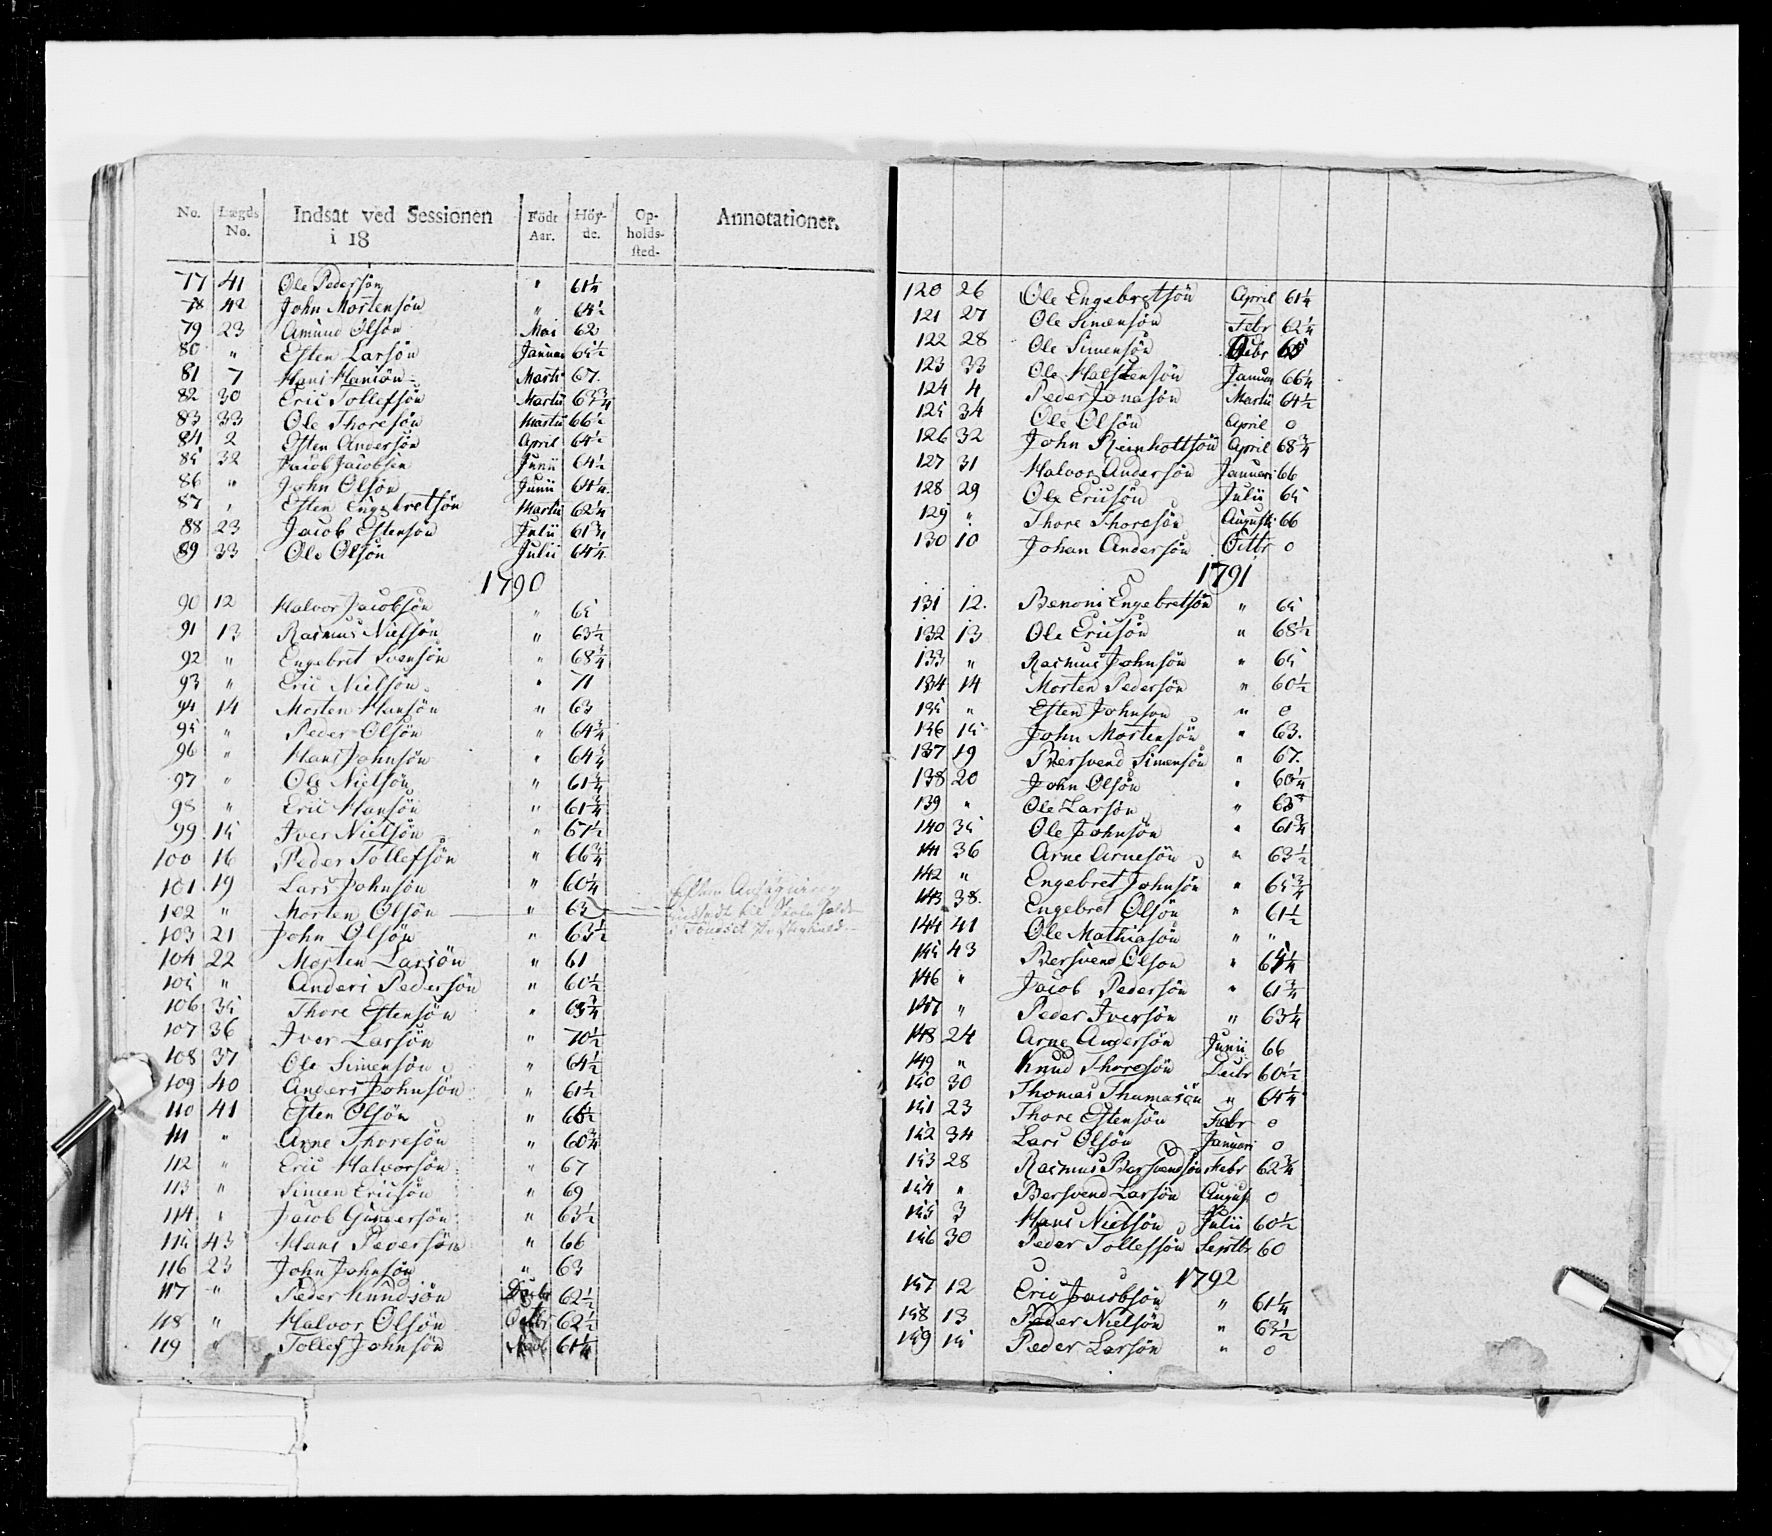 No. Lægds No. Indsat ved Sessionen i 18 Födt Aar. Höy-de. Op-holds-sted- Annotationer.
77 41 Ole Pedersön " 61¼
78 42 John Mortensön " 64½
79 23 Amund Olsön Mai 62
80 " Esten Larsön Januar 65½
81 7 Hans Hansön Marti 67.
82 30 Eric Tollefsön Martii 63¾
83 33 Ole Thoresön Martii 66½
84 2 Esten Andersön April 64½
85 32 Jacob Jacobsen Junii 64½
86 " John Olsön Junii 64¼
87 " Esten Engebretsön Martii 62¼
88 23 Jacob Estensön Julii 61¾
89 33 Ole Olsön Julii 64¼
1790
90 12 Halvor Jacobsön " 65
91 13 Rasmus Nielsön " 63½
92 " Engebret Svensön " 68¾
93 " Eric Nielsön " 71
94 14 Morten Hansön " 63
95 " Peder Olsön " 64¾
96 " Hans Johnsön " 64¾
97 " Ole Nielsön " 61¾
98 " Eric Hansön " 61¾
99 15 Iver Nielsön " 67½
100 16 Peder Tollefsön " 66¾
101 19 Lars Johnsön " 60¼
102 " Morten Olsön " 63
103 21 John Olsön " 63½
104 22 Morten Larsön " 61
105 " Anders Pedersön " 60½
106 35 Thore Estensön " 63¾
107 36 Iver Larsön " 70½
108 37 Ole Simensön " 64½
109 40 Anders Johnsön " 61½
110 41 Esten Olsön " 66½
111 " Arne Thoresön " 60¾
112 " Eric Halvorsön " 67
113 " Simen Ericsön " 69
114 " Jacob Gundersön " 63½
115 43 Hans Pedersön " 66
116 23 John Johnsön " 63
117 " Peder Knudsön Decbr 62½
118 " Halvor Olsön Octbr 62½
119 " Tollef Johnsön 61¼
120 26 Ole Engebretsön April 61¼
121 27 Ole Simensön Febr 62¼
122 28 Ole Simensön 65
123 33 Ole Halstensön Januar 66¼
124 4 Peder Jonasön Martii 64½
125 34 Ole Olsön April 0
126 32 John Reinholtsön April 68¾
127 31 Halvor Andersön Januari 66
128 29 Ole Ericsön Julii 65
129 " Thore Thoresön Augusti 66
130 10 Johan Andersön Octbr 0
1791
131 12. Benoni Engebretsön " 65
132 13 Ole Ericsön " 68½
133 " Rasmus Johnsön " 65
134 14 Morten Pedersön " 60½
135 " Esten Johnson " 0
136 15 John Mortensön " 63.
137 19 Bersvend Simensön " 67.
138 20 John Olsön " 60¼
139 " Ole Larsön " 63
140 35 Ole Johnsön " 61¾
141 36 Arne Arnesön " 63½
142 " Engebret Johnsön " 65¾
143 38. Engebret Olsön " 61½
144 41 Ole Mathiasön " "
145 43 Bersvend Olson " 65¼
146 " Jacob Pedersön " 61¾
147 " Peder Iversön " 63¼
148 24 Arne Andersön Junii 66
149 " Knud Thoresön Decbr 60½
150 30 Thomas Thomasön " 64¼
151 23 Thore Estensön Febr 0
152 34 Lars Olsön Januari 0
153 28 Rasmus Bersvendsön Febr 62¾
154 " Bersvend Larsön August 0
155 3 Hans Nielsön Julii 60½
156 30 Peder Tollefsön Septbr 60
1792
157 12 Eric Jacobsön " 61¼
158 13 Peder Nielsön " 63½
159 15 Peder Larsön " 0